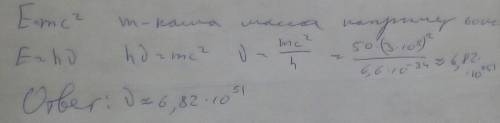 E=mc² m-ваша масса например
E=hν hν=mc² ν=mc²/h = 50·(3·10⁸)²/6,6·10⁻³⁴ ≈ 6,82·10⁵¹
Ответ: ν≈6,82·10⁵¹